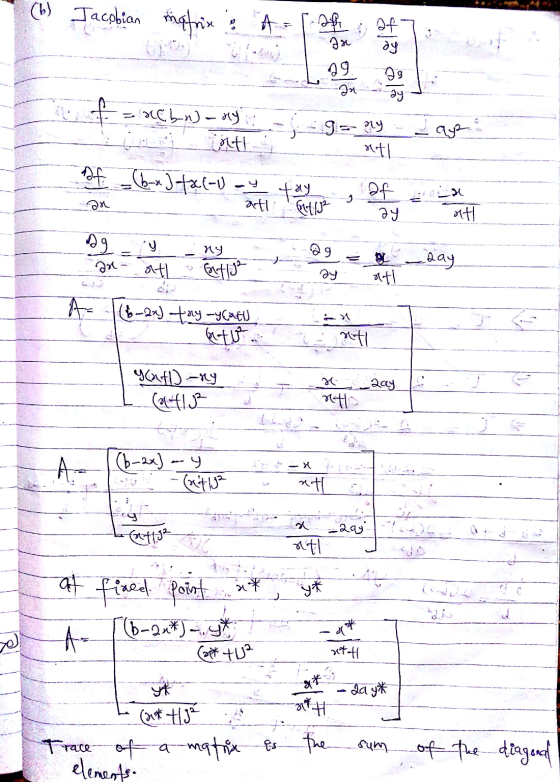 (b) Jacobian matrix : A = [ ∂f/∂x ∂f/∂y
∂g/∂x ∂g/∂y ]
f = x(b-x) - xy/(x+1) , g = xy/(x+1) - ay²
∂f/∂x = (b-x) + x(-1) - y/(x+1) + xy/(x+1)² , ∂f/∂y = -x/(x+1)
∂g/∂x = y/(x+1) - xy/(x+1)² , ∂g/∂y = x/(x+1) - 2ay
A = [ (b-2x) + xy-y(x+1)/(x+1)² -x/(x+1)
y(x+1)-xy/(x+1)² x/(x+1) - 2ay ]
A = [ (b-2x) - y/(x+1)² -x/(x+1)
y/(x+1)² x/(x+1) - 2ay ]
at fixed point x* , y*
A = [ (b-2x*) - y*/(x*+1)² -x*/(x*+1)
y*/(x*+1)² x*/(x*+1) - 2ay* ]
Trace of a matrix is the sum of the diagonal
elements.